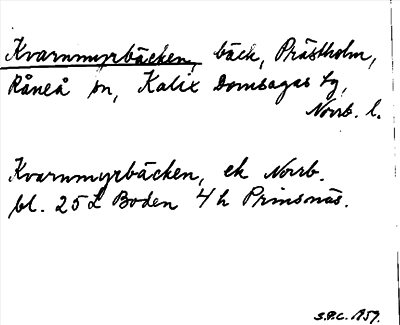 Kvarnmyrbäcken, bäck, Prästholm,
Råneå sn, Kalix Domsagas tg,
Norrb. l.
Kvarnmyrbäcken, ek Norrb.
bl. 25 L Boden 4 h Prinsnäs.
S.P.C. 1959.